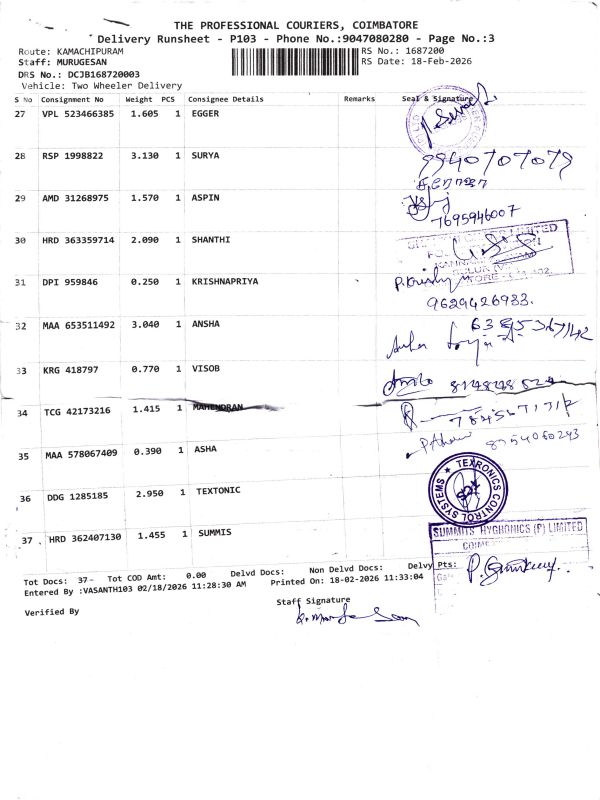 THE PROFESSIONAL COURIERS, COIMBATORE
Delivery Runsheet - P103 - Phone No.:9047080280 - Page No.:3
Route: KAMACHIPURAM
RS No.: 1687200
Staff: MURUGESAN
RS Date: 18-Feb-2026
DRS No.: DCJB168720003
Vehicle: Two Wheeler Delivery
S No Consignment No Weight PCS Consignee Details Remarks Seal & Signature
27 VPL 523466385 1.605 1 EGGER
28 RSP 1998822 3.130 1 SURYA
9940707079
29 AMD 31268975 1.570 1 ASPIN
7695946007
30 HRD 363359714 2.090 1 SHANTHI
31 DPI 959846 0.250 1 KRISHNAPRIYA
9629426983.
32 MAA 653511492 3.040 1 ANSHA
33 KRG 418797 0.770 1 VISOB
34 TCG 42173216 1.415 1 MAHENDRAN
35 MAA 578067409 0.390 1 ASHA
8754060243
36 DDG 1285185 2.950 1 TEXTONIC
TEXRONICS CONTROL SYSTEMS
37 HRD 362407130 1.455 1 SUMMIS
SUMMITS HYGRONICS (P) LIMITED
Tot Docs: 37 Tot COD Amt: 0.00 Delvd Docs: Non Delvd Docs: Delvy Pts:
Entered By :VASANTH103 02/18/2026 11:28:30 AM Printed On: 18-02-2026 11:33:04
Staff Signature
Verified By